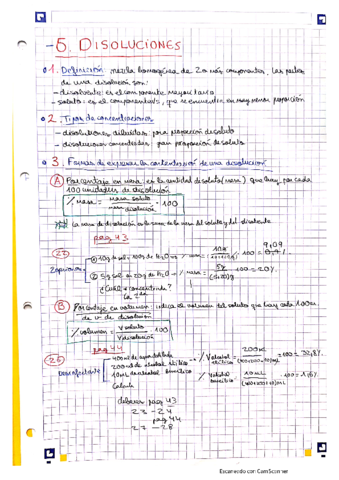 5. DISOLUCIONES
1. Definición: mezcla homogénea de 2 o más componentes, las partes
de una disolución son:
- disolvente: es el componente mayoritario
- soluto: es el componente, que se encuentra en muy menor proporción
2. Tipos de concentraciones
- disoluciones diluidas: poca proporción de soluto
- disoluciones concentradas: gran proporción de soluto
3. Formas de expresar la concentración de una disolución
A Porcentaje en masa: es la cantidad de soluto (masa) que hay por cada
100 unidades de disolución
% masa = masa soluto / masa disolución · 100
La masa de disolución es la suma de la masa del soluto y del disolvente
pag 43
22
① 10g de sol en 100g de H2O → % masa = 10g / · 100 = 9,09
② 5g sol en 20g de H2O → % masa = 5g / · 100 = 20%
¿Cuál es + concentrada?
La 2ª
B Porcentaje en volumen: indica el volumen del soluto que hay cada 100ml
de v de disolución
% volumen = V soluto / V disolución · 100
pag 44
26
Desinfectante
400 ml de agua destilada
200 ml de alcohol etílico
10 ml de alcohol bencílico
Calcula
200ml · 100 = 32,8%
10 ml · 100 = 1,6%
deberes pag 43
23 - 24
pag 44
27 - 28
Escaneado con CamScanner